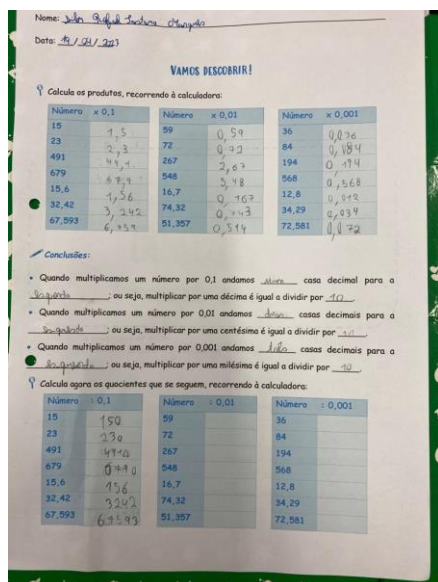 Nome: João Rafael Santana Marques
Data: 19 / 04 / 2023
VAMOS DESCOBRIR!
Calcula os produtos, recorrendo à calculadora:
Número x 0,1
15 1,5
23 2,3
491 49,1
679 67,9
15,6 1,56
32,42 3,242
67,593 6,759
Número x 0,01
59 0,59
72 0,72
267 2,67
548 5,48
16,7 0,167
74,32 0,743
51,357 0,514
Número x 0,001
36 0,036
84 0,084
194 0,194
568 0,568
12,8 0,012
34,29 0,034
72,581 0,072
Conclusões:
• Quando multiplicamos um número por 0,1 andamos uma casa decimal para a
esquerda; ou seja, multiplicar por uma décima é igual a dividir por 10.
• Quando multiplicamos um número por 0,01 andamos duas casas decimais para a
esquerda; ou seja, multiplicar por uma centésima é igual a dividir por
• Quando multiplicamos um número por 0,001 andamos três casas decimais para a
esquerda; ou seja, multiplicar por uma milésima é igual a dividir por 10.
Calcula agora os quocientes que se seguem, recorrendo à calculadora:
Número : 0,1
15 150
23 230
491 4910
679
15,6 156
32,42 3242
67,593 67593
Número : 0,01
59
72
267
548
16,7
74,32
51,357
Número : 0,001
36
84
194
568
12,8
34,29
72,581